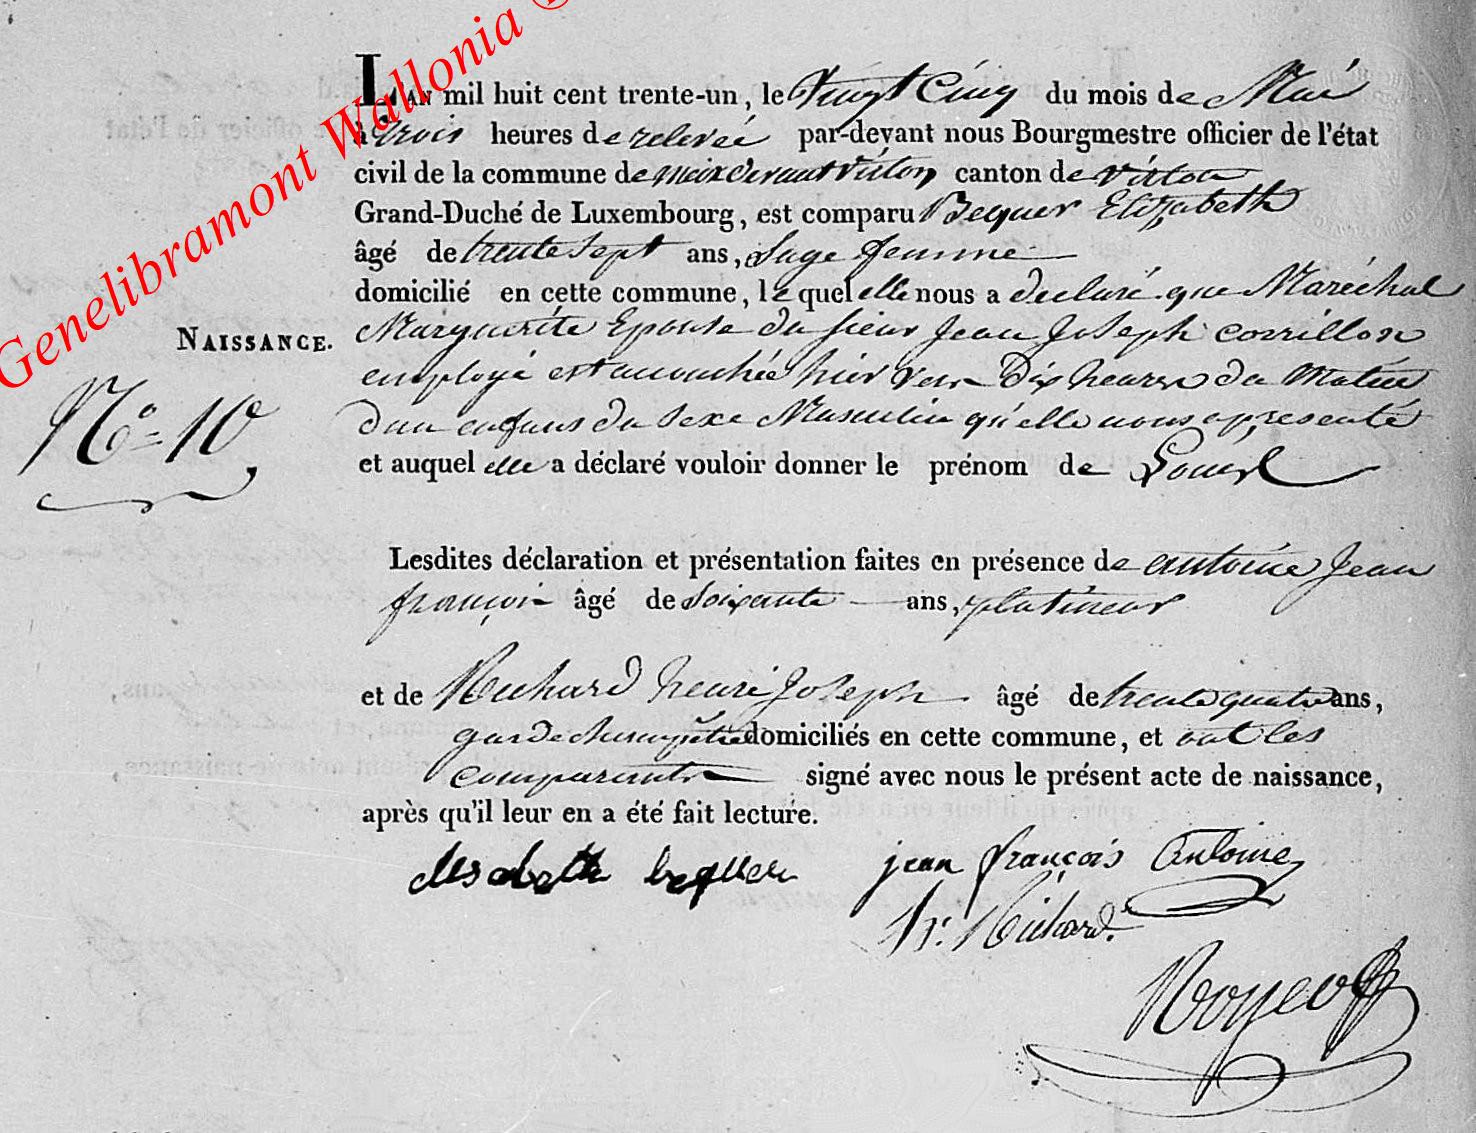 Genelibramont Wallonia ©
L'AN mil huit cent trente-un, le Vingt Cinq du mois de Mai
à trois heures de relevée par-devant nous Bourgmestre officier de l'état
civil de la commune de meix devant Virton canton de virton
Grand-Duché de Luxembourg, est comparu Bequer Elizabeth
âgé de trente sept ans, Sage femme
domicilié en cette commune, le quel elle nous a declaré que Maréchal
NAISSANCE. Marguerite Epouse du sieur Jean Joseph corrillon
employé est accouchée hier vers Dix heures du Matin
N° 10, d'un enfans du sexe Masculin qu'elle nous a presenté
et auquel elle a déclaré vouloir donner le prénom de Louis
Lesdites déclaration et présentation faites en présence de antoine Jean
françois âgé de Soixante ans, platineur
et de Richard henri Joseph âgé de trente quatre ans,
garde champêtre domiciliés en cette commune, et ont les
comparants signé avec nous le présent acte de naissance,
après qu'il leur en a été fait lecture.
elisabeth bequer jean françois Antoine
hri Richard